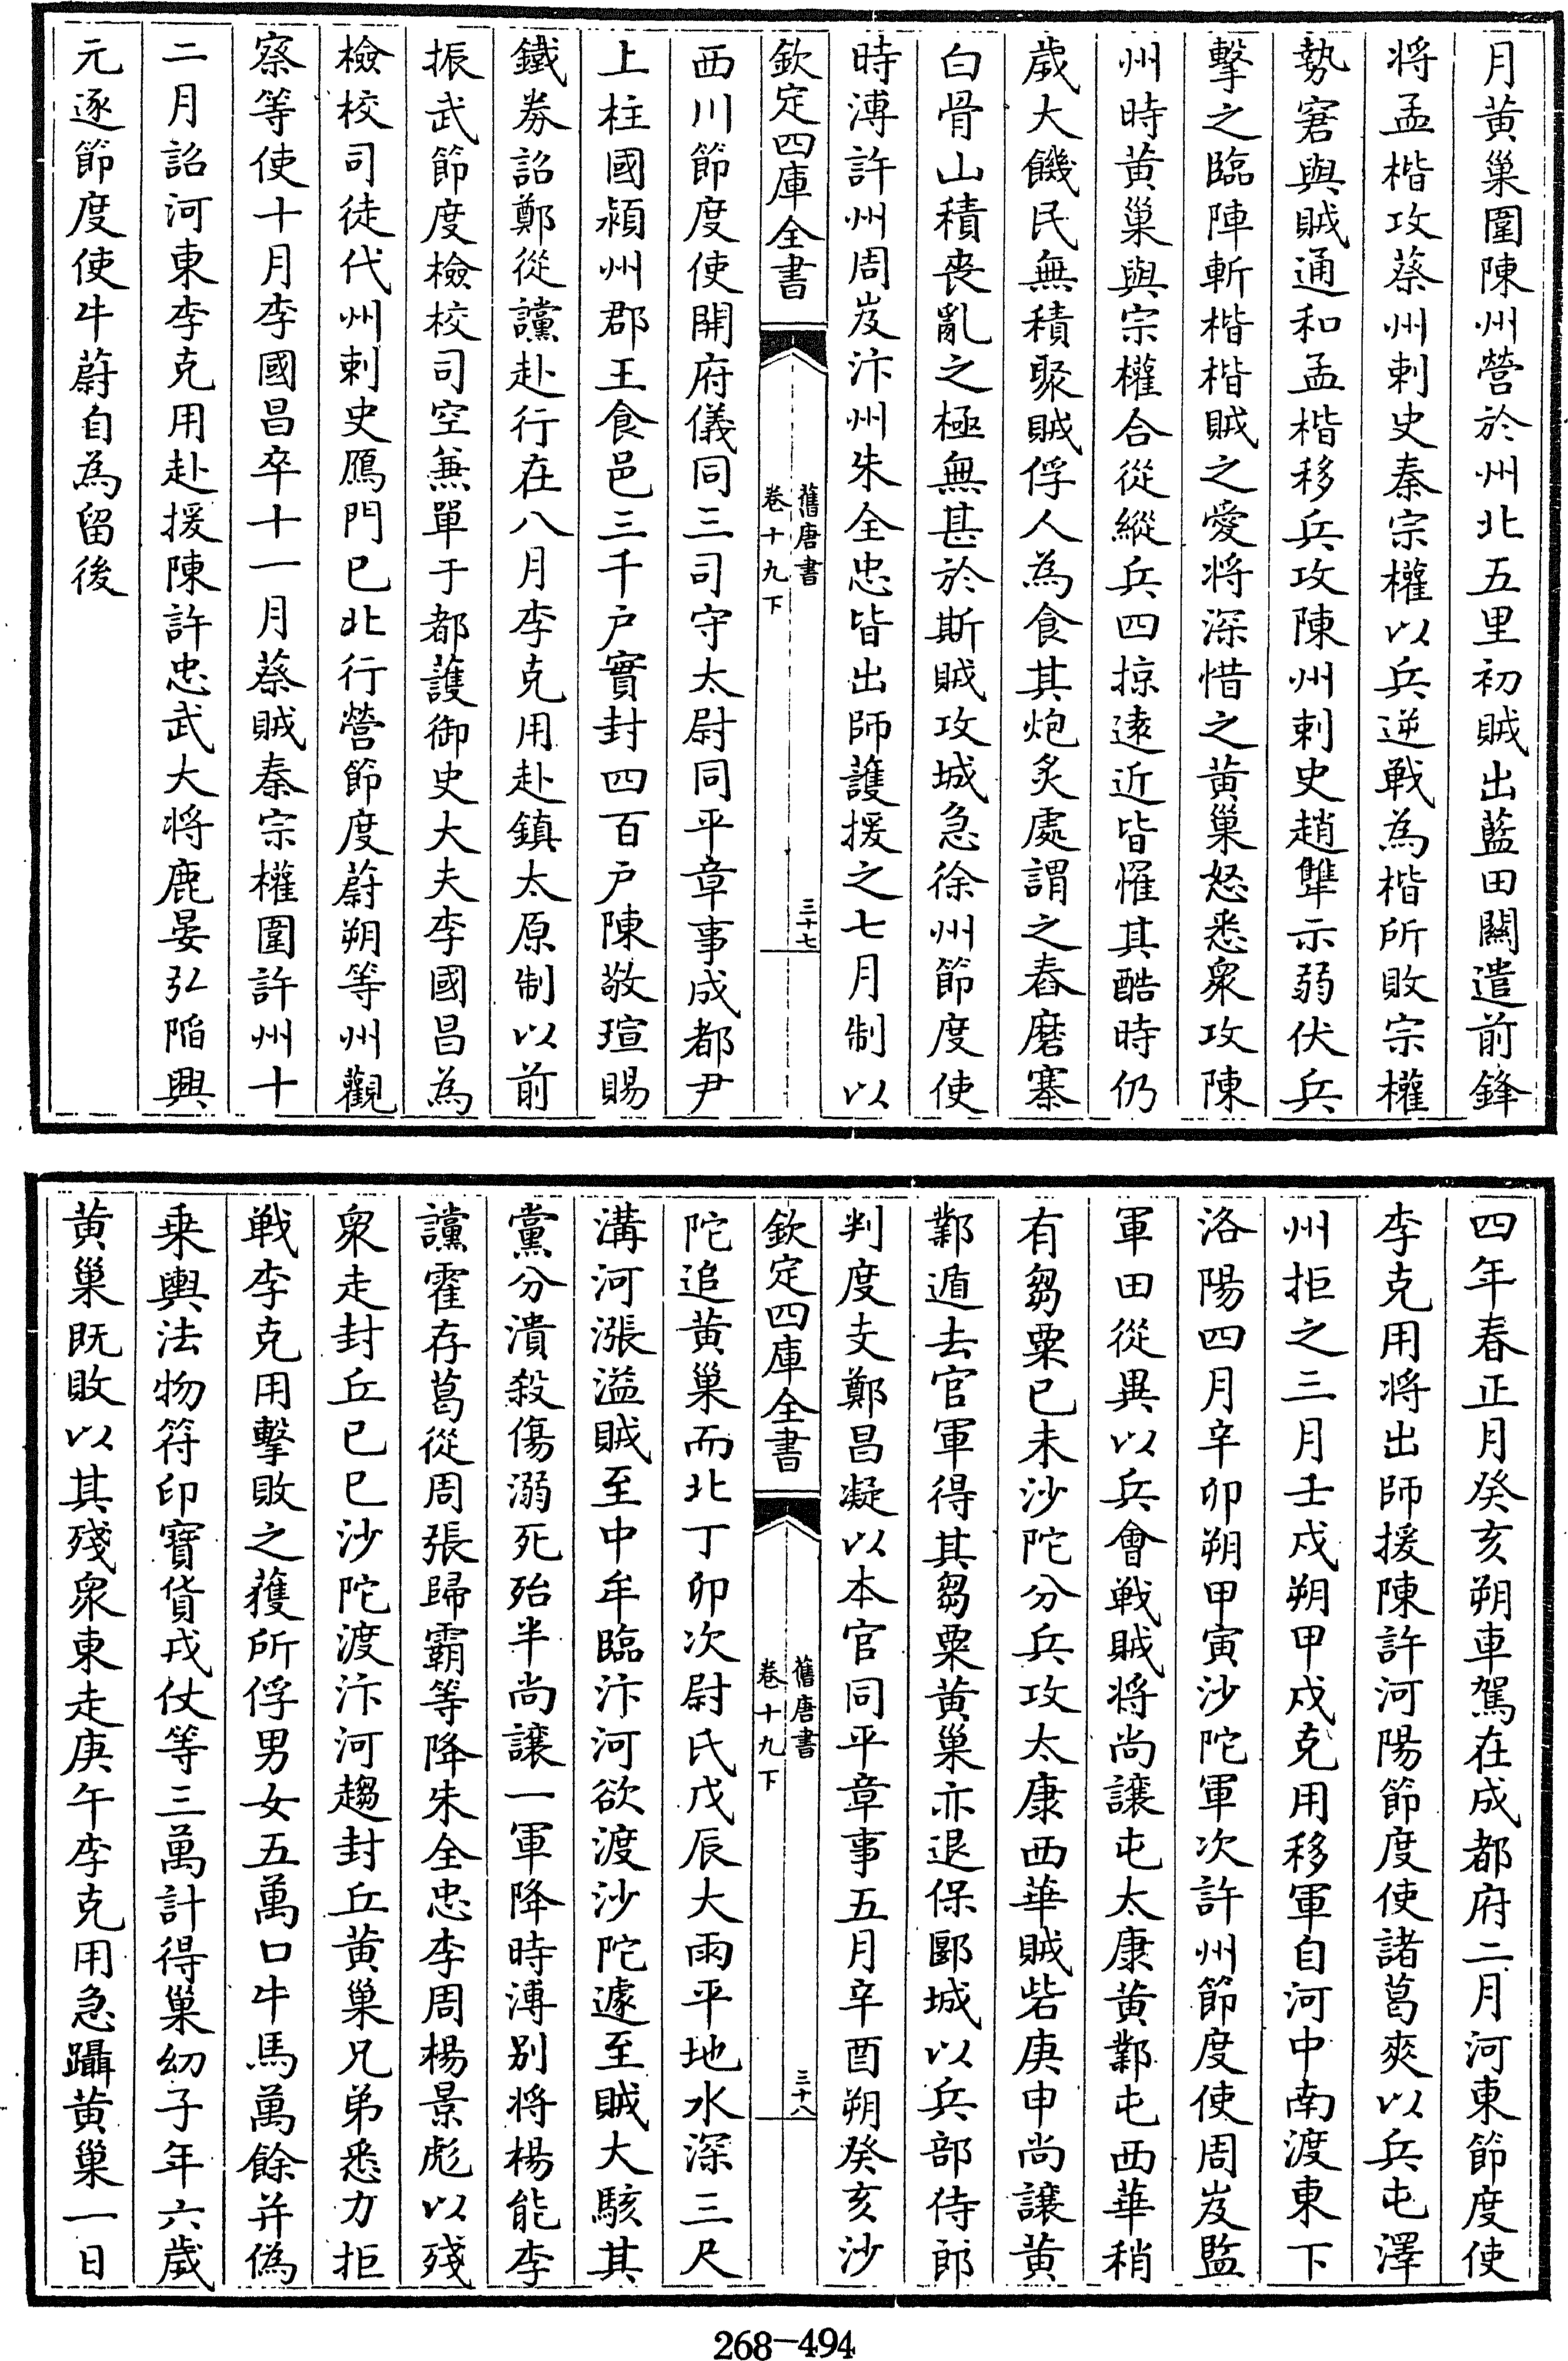 月黄巢圍陳州營於州北五里初賊出藍田關遣前鋒
将孟楷攻蔡州刺史秦宗權以兵逆戰為楷所敗宗權
勢窘與賊通和孟楷移兵攻陳州刺史趙犨示弱伏兵
擊之臨陣斬楷楷賊之愛将深惜之黄巢怒悉衆攻陳
州時黄巢與宗權合從縱兵四掠遠近皆罹其酷時仍
歲大饑民無積聚賊俘人為食其炮炙處謂之舂磨寨
白骨山積喪亂之極無甚於斯賊攻城急徐州節度使
時溥許州周岌汴州朱全忠皆出師護援之七月制以
欽定四庫全書
舊唐書
卷十九下
三十七
西川節度使開府儀同三司守太尉同平章事成都尹
上柱國潁州郡王食邑三千户實封四百户陳敬瑄賜
鐵券詔鄭從讜赴行在八月李克用赴鎮太原制以前
振武節度檢校司空兼單于都護御史大夫李國昌為
檢校司徒代州刺史鴈門已北行營節度蔚朔等州觀
察等使十月李國昌卒十一月蔡賊秦宗權圍許州十
二月詔河東李克用赴援陳許忠武大将鹿晏弘陷興
元逐節度使牛蔚自為留後
四年春正月癸亥朔車駕在成都府二月河東節度使
李克用将出師援陳許河陽節度使諸葛爽以兵屯澤
州拒之三月壬戌朔甲戌克用移軍自河中南渡東下
洛陽四月辛卯朔甲寅沙陀軍次許州節度使周岌監
軍田從異以兵會戰賊将尚讓屯太康黄鄴屯西華稍
有芻粟已未沙陀分兵攻太康西華賊砦庚申尚讓黄
鄴遁去官軍得其芻粟黄巢亦退保郾城以兵部侍郎
判度支鄭昌凝以本官同平章事五月辛酉朔癸亥沙
欽定四庫全書
舊唐書
卷十九下
三十八
陀追黄巢而北丁卯次尉氏戊辰大雨平地水深三尺
溝河漲溢賊至中牟臨汴河欲渡沙陀遽至賊大駭其
黨分潰殺傷溺死殆半尚讓一軍降時溥别将楊能李
讜霍存葛從周張歸霸等降朱全忠李周楊景彪以殘
衆走封丘已巳沙陀渡汴河趨封丘黄巢兄弟悉力拒
戰李克用擊敗之獲所俘男女五萬口牛馬萬餘并偽
乗輿法物符印寶貨戎仗等三萬計得巢幼子年六歲
黄巢既敗以其殘衆東走庚午李克用急躡黄巢一日
268-494